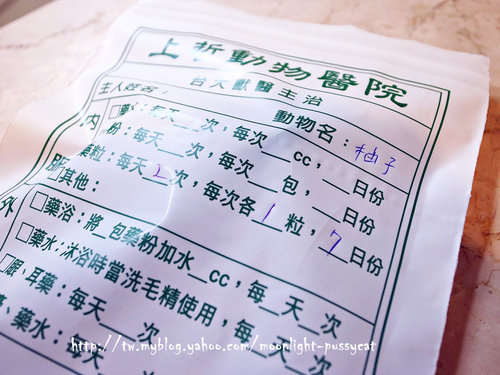 上哲動物醫院
台大獸醫主治
主人姓名： 動物名：柚子
內服
□藥水：每天__次，每次__cc，__日份
粉：每天__次，每次__包，__日份
藥粒：每天2次，每次各1粒，7日份
□其他：
外
□藥浴：將_包藥粉加水_cc，每_天_次
□藥水：沐浴時當洗毛精使用，每_天_次
□眼、耳藥：每天__次
藥水：每天__次
http://tw.myblog.yahoo.com/moonlight-pussycat